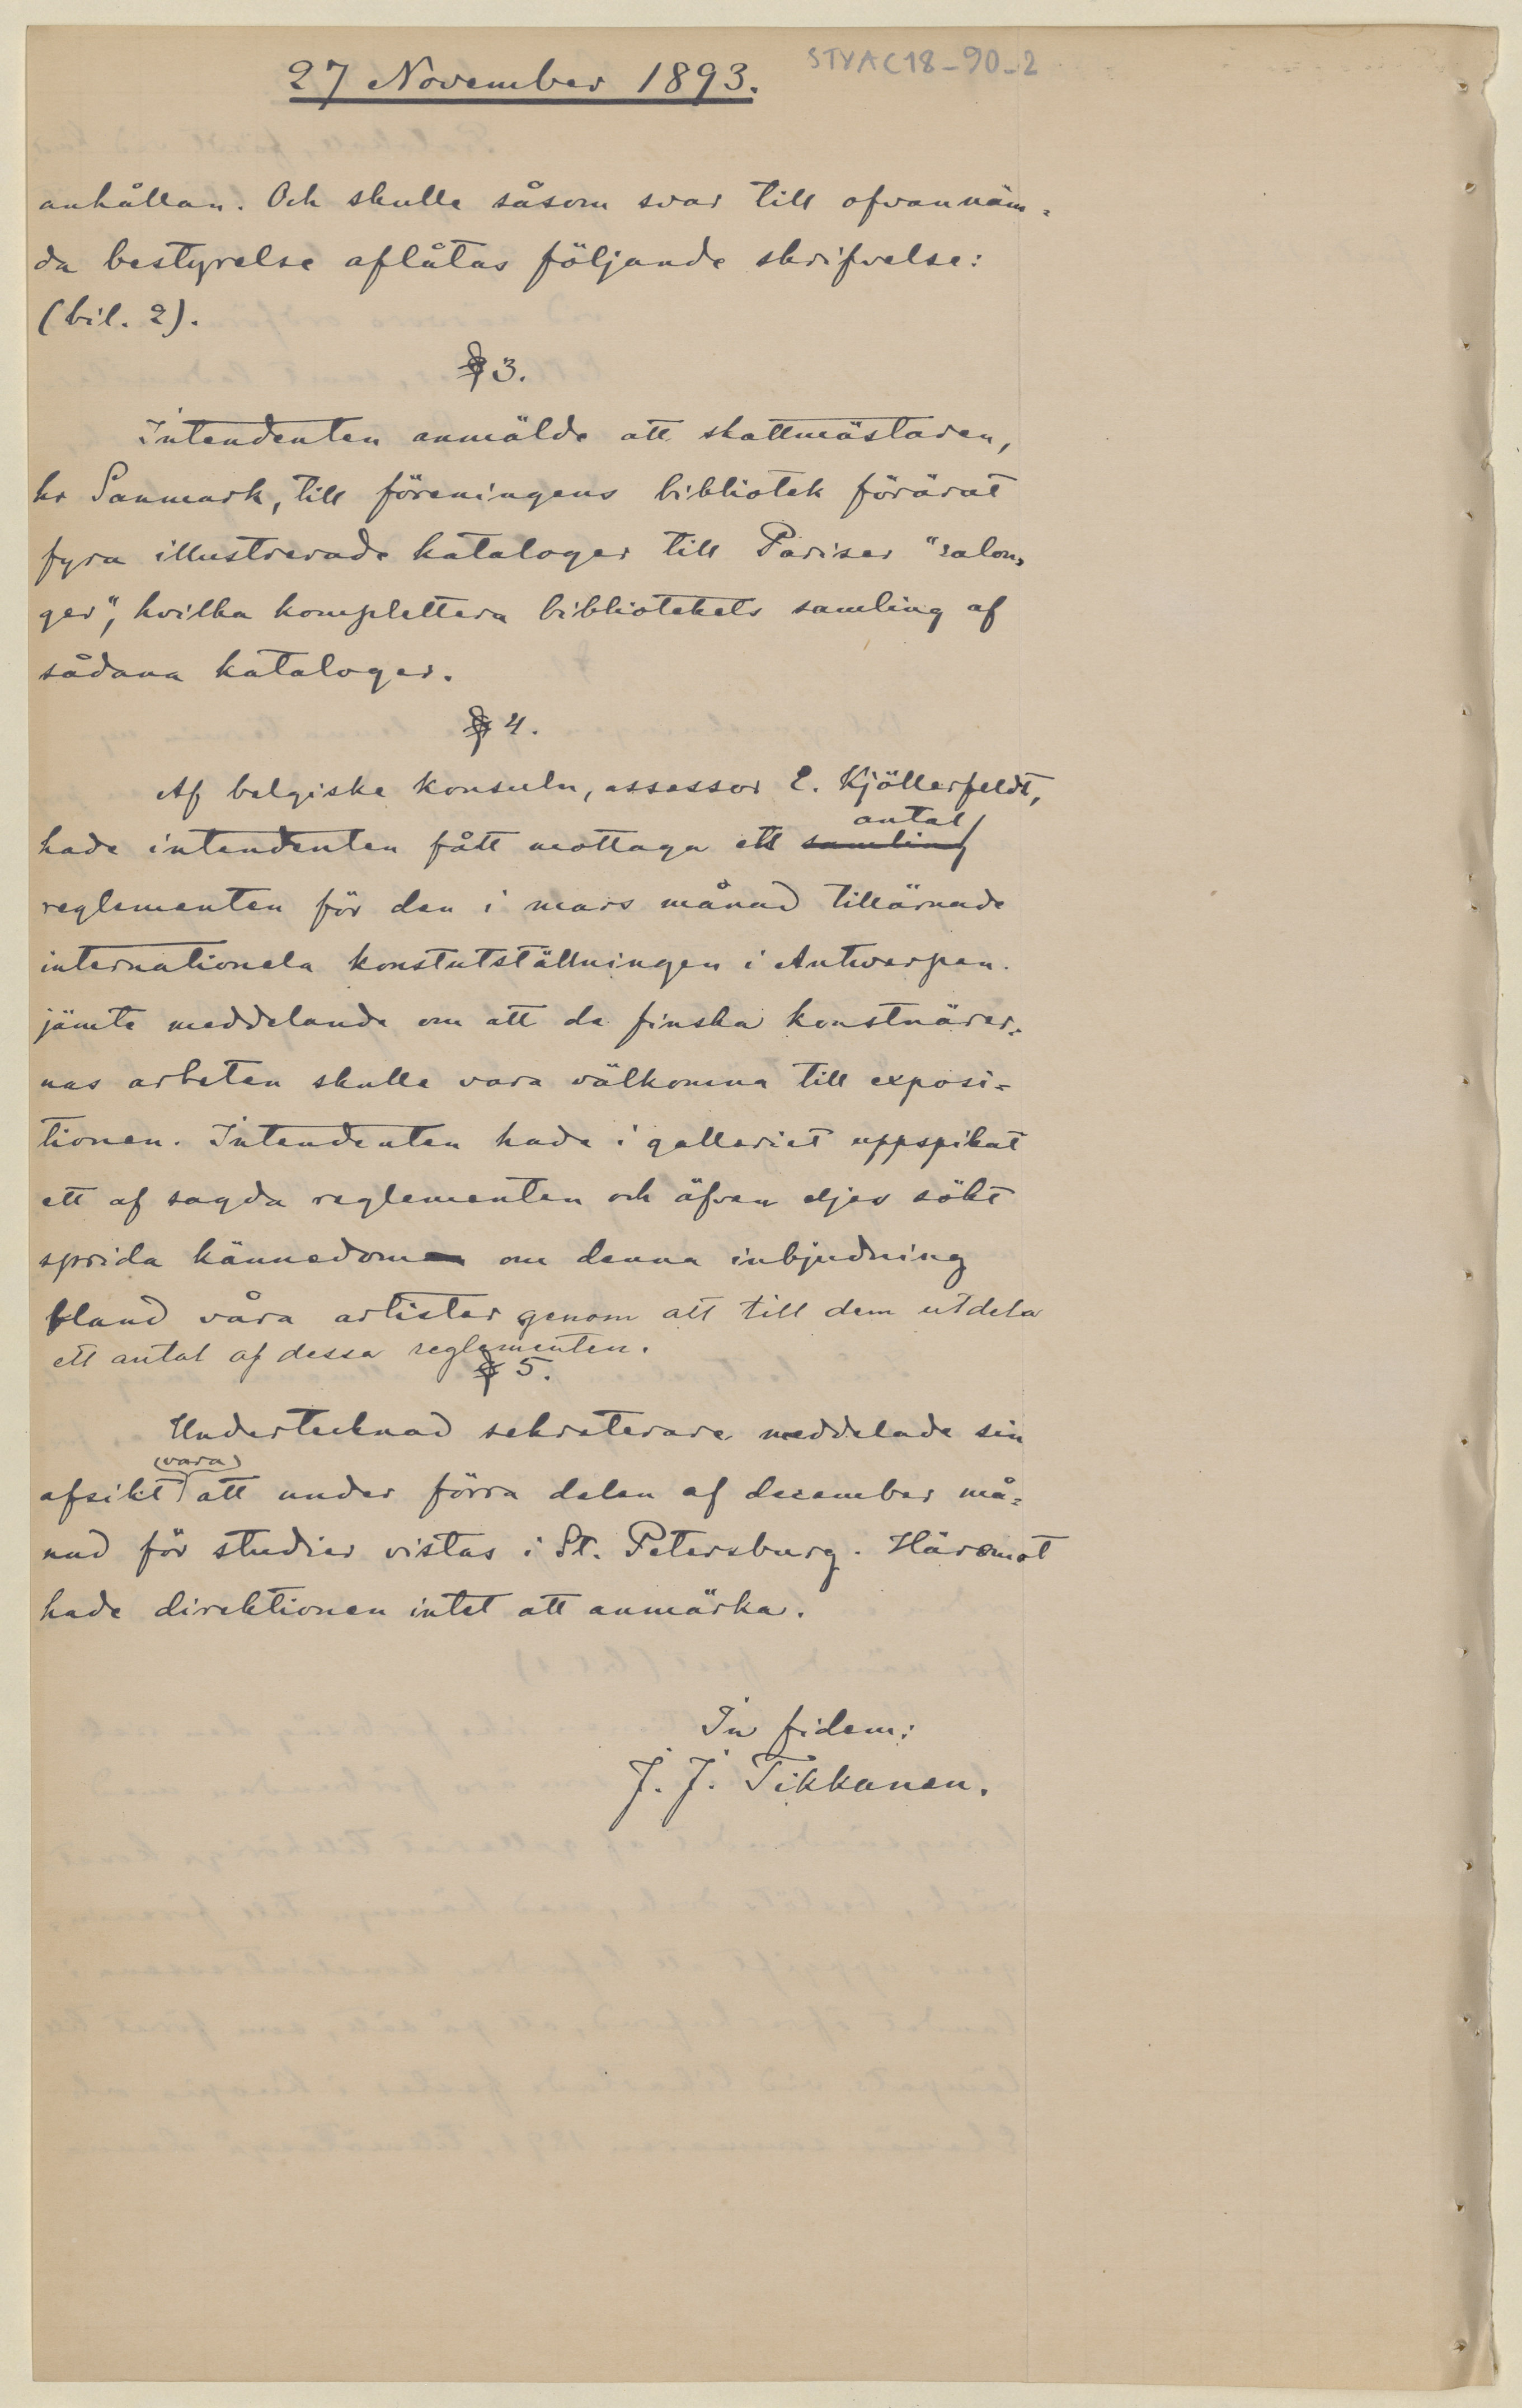 27 November 1893.
STYAC18-90-2
anhållan. Och skulle såsom svar till ofvannäm=
da bestyrelse aflåtas följande skrifvelse:
(bil. 2).
§ 3.
Intendenten anmälde att skattmästaren,
hr Sanmark, till föreningens bibliotek förärat
fyra illustrerade kataloger till Pariser "salon=
ger", hvilka komplettera bibliotekets samling af
sådana kataloger.
§ 4.
Af belgiske konsuln, assessor E. Kjöllerfeldt,
antal
hade intendenten fått mottaga ett samling
reglementen för den i mars månad tillärnade
internationela konstutställningen i Antwerpen.
jämte meddelande om att de finska konstnärer=
nas arbeten skulle vara välkomna till exposi=
tionen. Intendenten hade i galleriet uppspikat
ett af sagda reglementen och äfven eljes sökt
sprida kännedom om denna inbjudning
bland våra artister genom att till dem utdela
ett antal af dessa reglementen.
§ 5.
Undertecknad sekreterare meddelade sin
(vara)
afsikt att under förra delen af december må=
nad för studier vistas i St. Petersburg. Häremot
hade direktionen intet att anmärka.
In fidem:
J. J. Tikkanen.